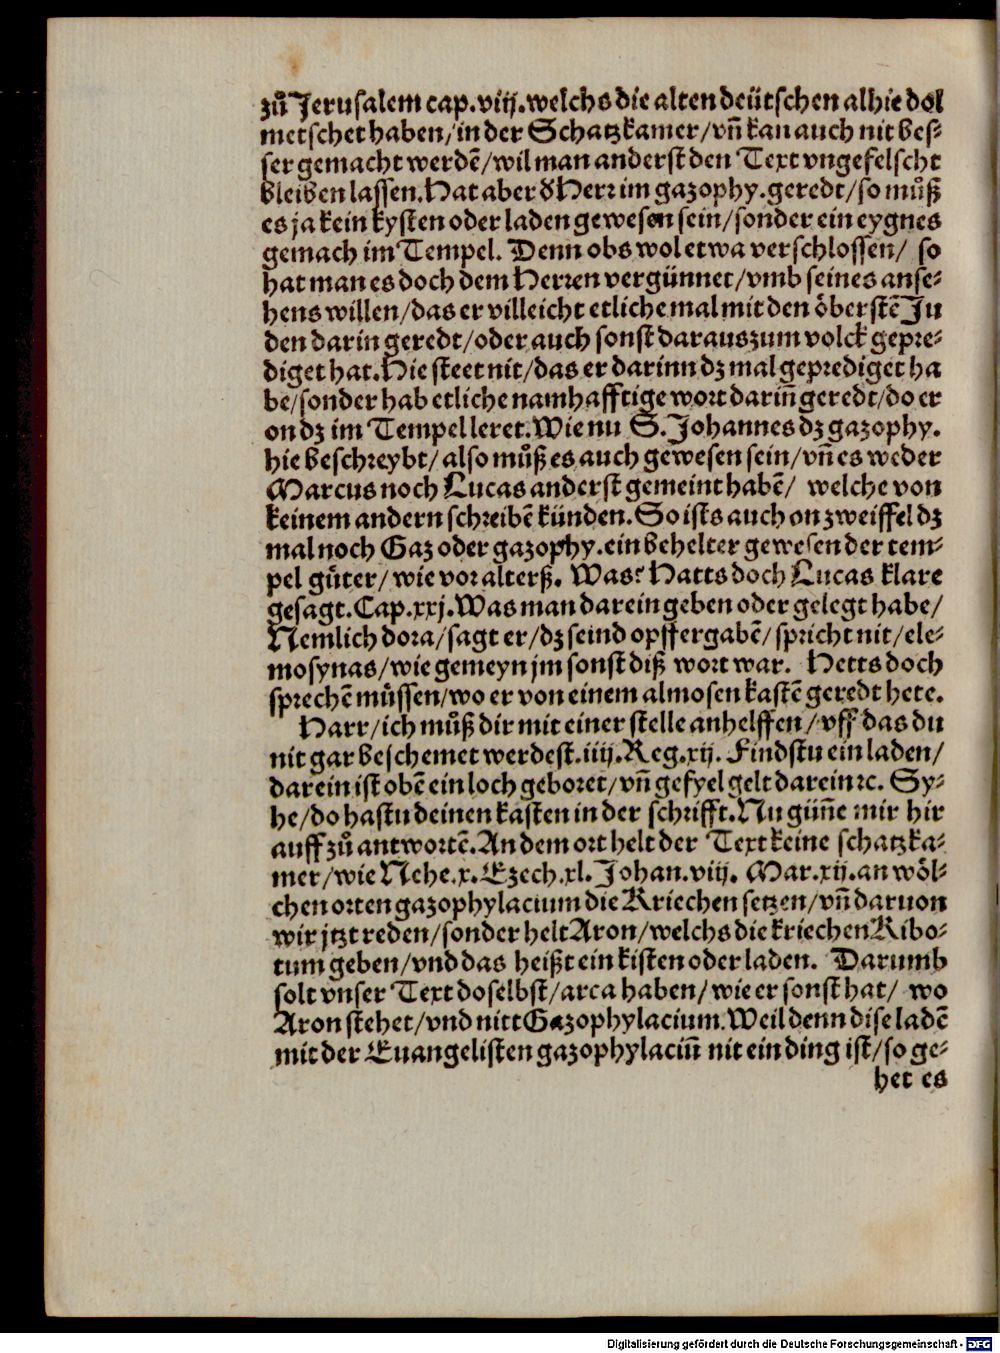 zů Jerusalem cap.viij.welchs die alten deütschen alhie dol
metschet haben/in der Schatzkamer/vñ kan auch nit bes-
ser gemacht werdẽ/wil man anderst den Text vngefelscht
bleiben lassen.Hat aber d' Herr im gazophy.geredt/so můß
es ja kein kysten oder laden gewesen sein/sonder ein eygnes
gemach im Tempel. Denn obs wol etwa verschlossen/ so
hat man es doch dem Herren vergünnet/vmb seines anse-
hens willen/das er villeicht etliche mal mit den öberstẽ Ju
den darin geredt/oder auch sonst daraus zum volck gepre-
diget hat.Hie steet nit/das er darinn dz mal geprediget ha
be/sonder hab etliche namhafftige wort dariñ geredt/do er
on dz im Tempel leret.Wie nu S.Johannes dz gazophy.
hie beschreybt/also můß es auch gewesen sein/vñ es weder
Marcus noch Lucas anderst gemeint habẽ/ welche von
keinem andern schreibẽ künden.So ists auch on zweiffel dz
mal noch Gaz oder gazophy.ein behelter gewesen der tem-
pel güter/wie vor alterß. Was? Hatts doch Lucas klare
gesagt.Cap.xxj.Was man darein geben oder gelegt habe/
Nemlich dora/sagt er/dz seind opffergabẽ/spricht nit/ele-
mosynas/wie gemeyn jm sonst diß wort war. Hetts doch
sprechẽ müssen/wo er von einem almosen kastẽ geredt hete.
Harr/ich můß dir mit einer stelle anhelffen/vff das du
nit gar beschemet werdest.iiij.Reg.xij. Findstu ein laden/
darein ist obẽ ein loch geboret/vñ gefyel gelt darein ꝛc. Sy-
he/do hastu deinen kasten in der schrifft.Nu güñe mir hir
auff zů antwortẽ.An dem ort helt der Text keine schatzka-
mer/wie Nehe.x.Ezech.xl.Johan.viij. Mar.xij.an wöl-
chen orten gazophylacium die Kriechen setzen/vñ daruon
wir jtzt reden/sonder helt Aron/welchs die kriechen Kibo-
tum geben/vnd das heißt ein kisten oder laden. Darumb
solt vnser Text doselbst/arca haben/wie er sonst hat/ wo
Aron stehet/vnd nitt Gazophylacium.Weil denn dise ladẽ
mit der Euangelisten gazophylaciũ nit ein ding ist/so ge-
het es
Digitalisierung gefördert durch die Deutsche Forschungsgemeinschaft - DFG